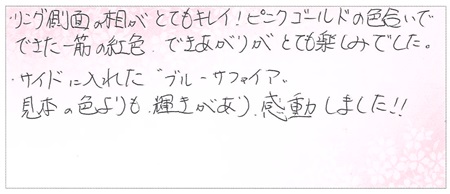 ・リング側面の相がとてもキレイ！ピンクゴールドの色合いで
できた一筋の紅色．できあがりがとても楽しみでした。
・サイドに入れた〝ブルーサファイア〟
見本の色よりも．輝きがあり．感動しました!!